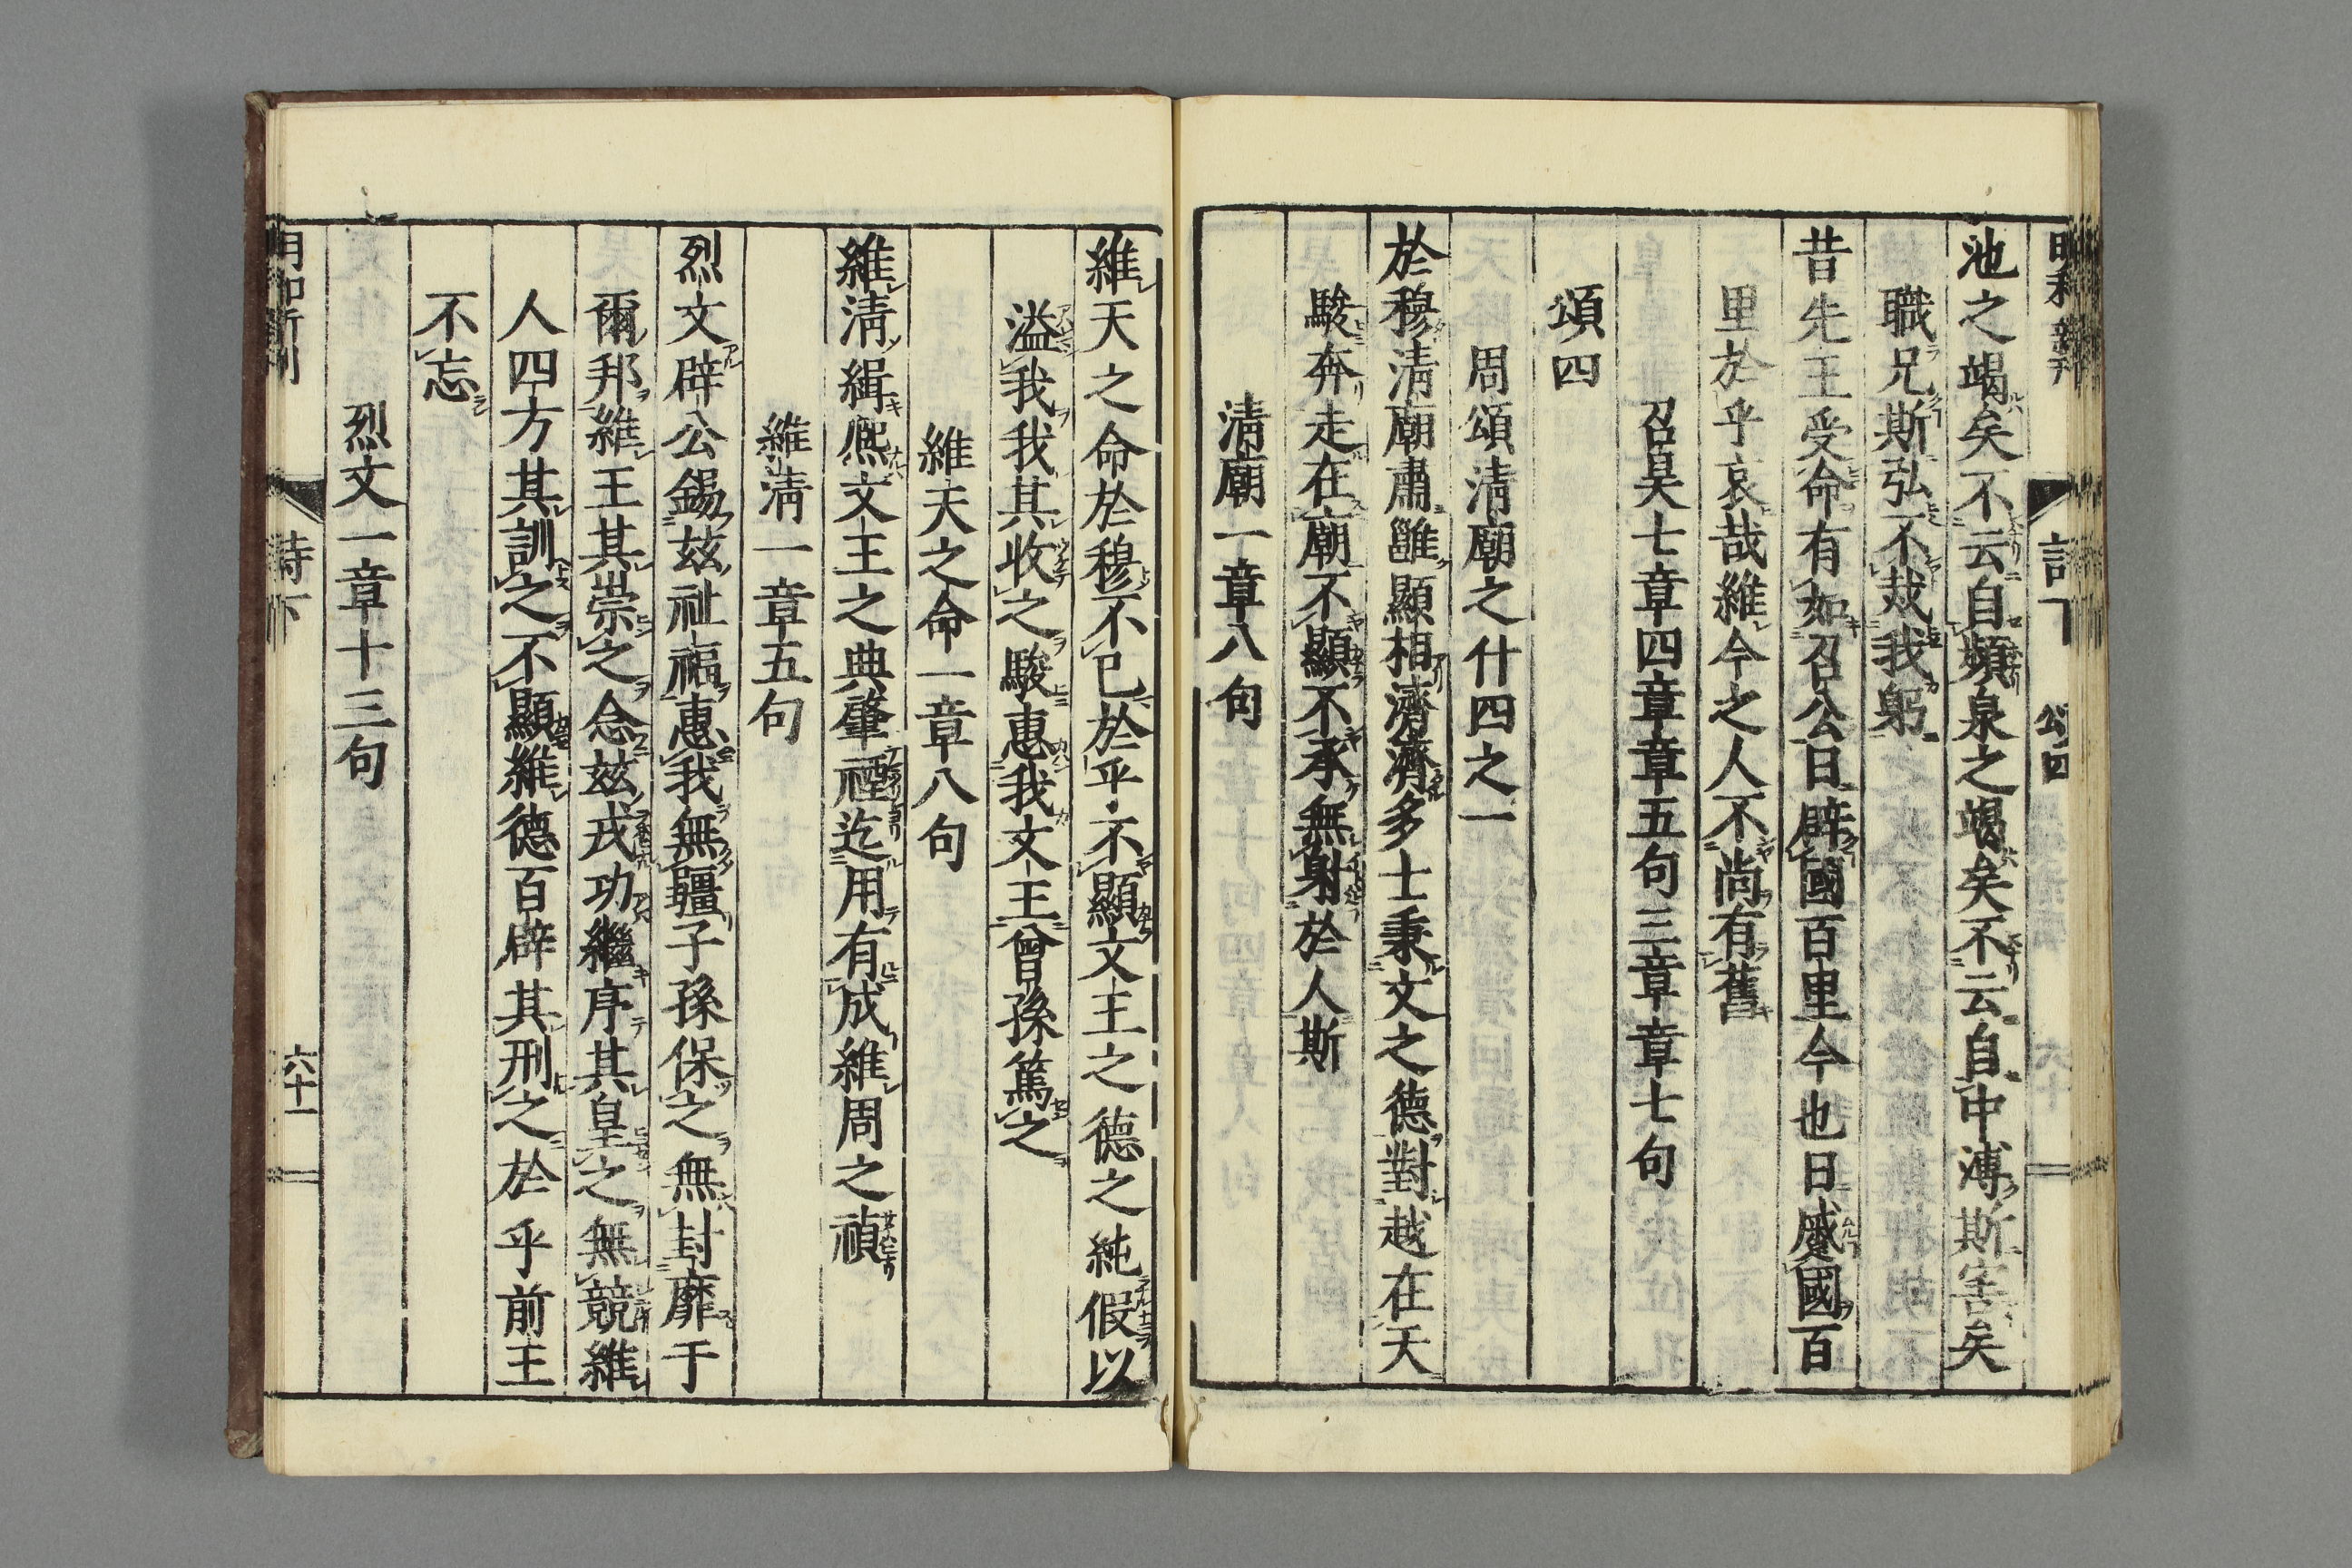 池之竭矣不云自頻泉之竭矣不云自中溥斯害矣
職兄斯弘不烖我躬
昔先王受命有如召公日辟國百里今也日蹙國百
里於乎哀哉維今之人不尚有舊
召旻七章四章章五句三章章七句
頌四
周頌清廟之什四之一
於穆清廟肅雝顯相濟濟多士秉文之德對越在天
駿奔走在廟不顯不承無射於人斯
清廟一章八句
維天之命於穆不已於乎不顯文王之德之純假以
溢我我其收之駿惠我文王曾孫篤之
維天之命一章八句
維淸緝熈文王之典肇禋迄用有成維周之禎
維淸一章五句
烈文辟公錫茲祉福惠我無疆子孫保之無封靡于
爾邦維王其崇之念茲戎功繼序其皇之無競維
人四方其訓之不顯維德百辟其刑之於乎前王
不忘
烈文一章十三句
詩下
六十一